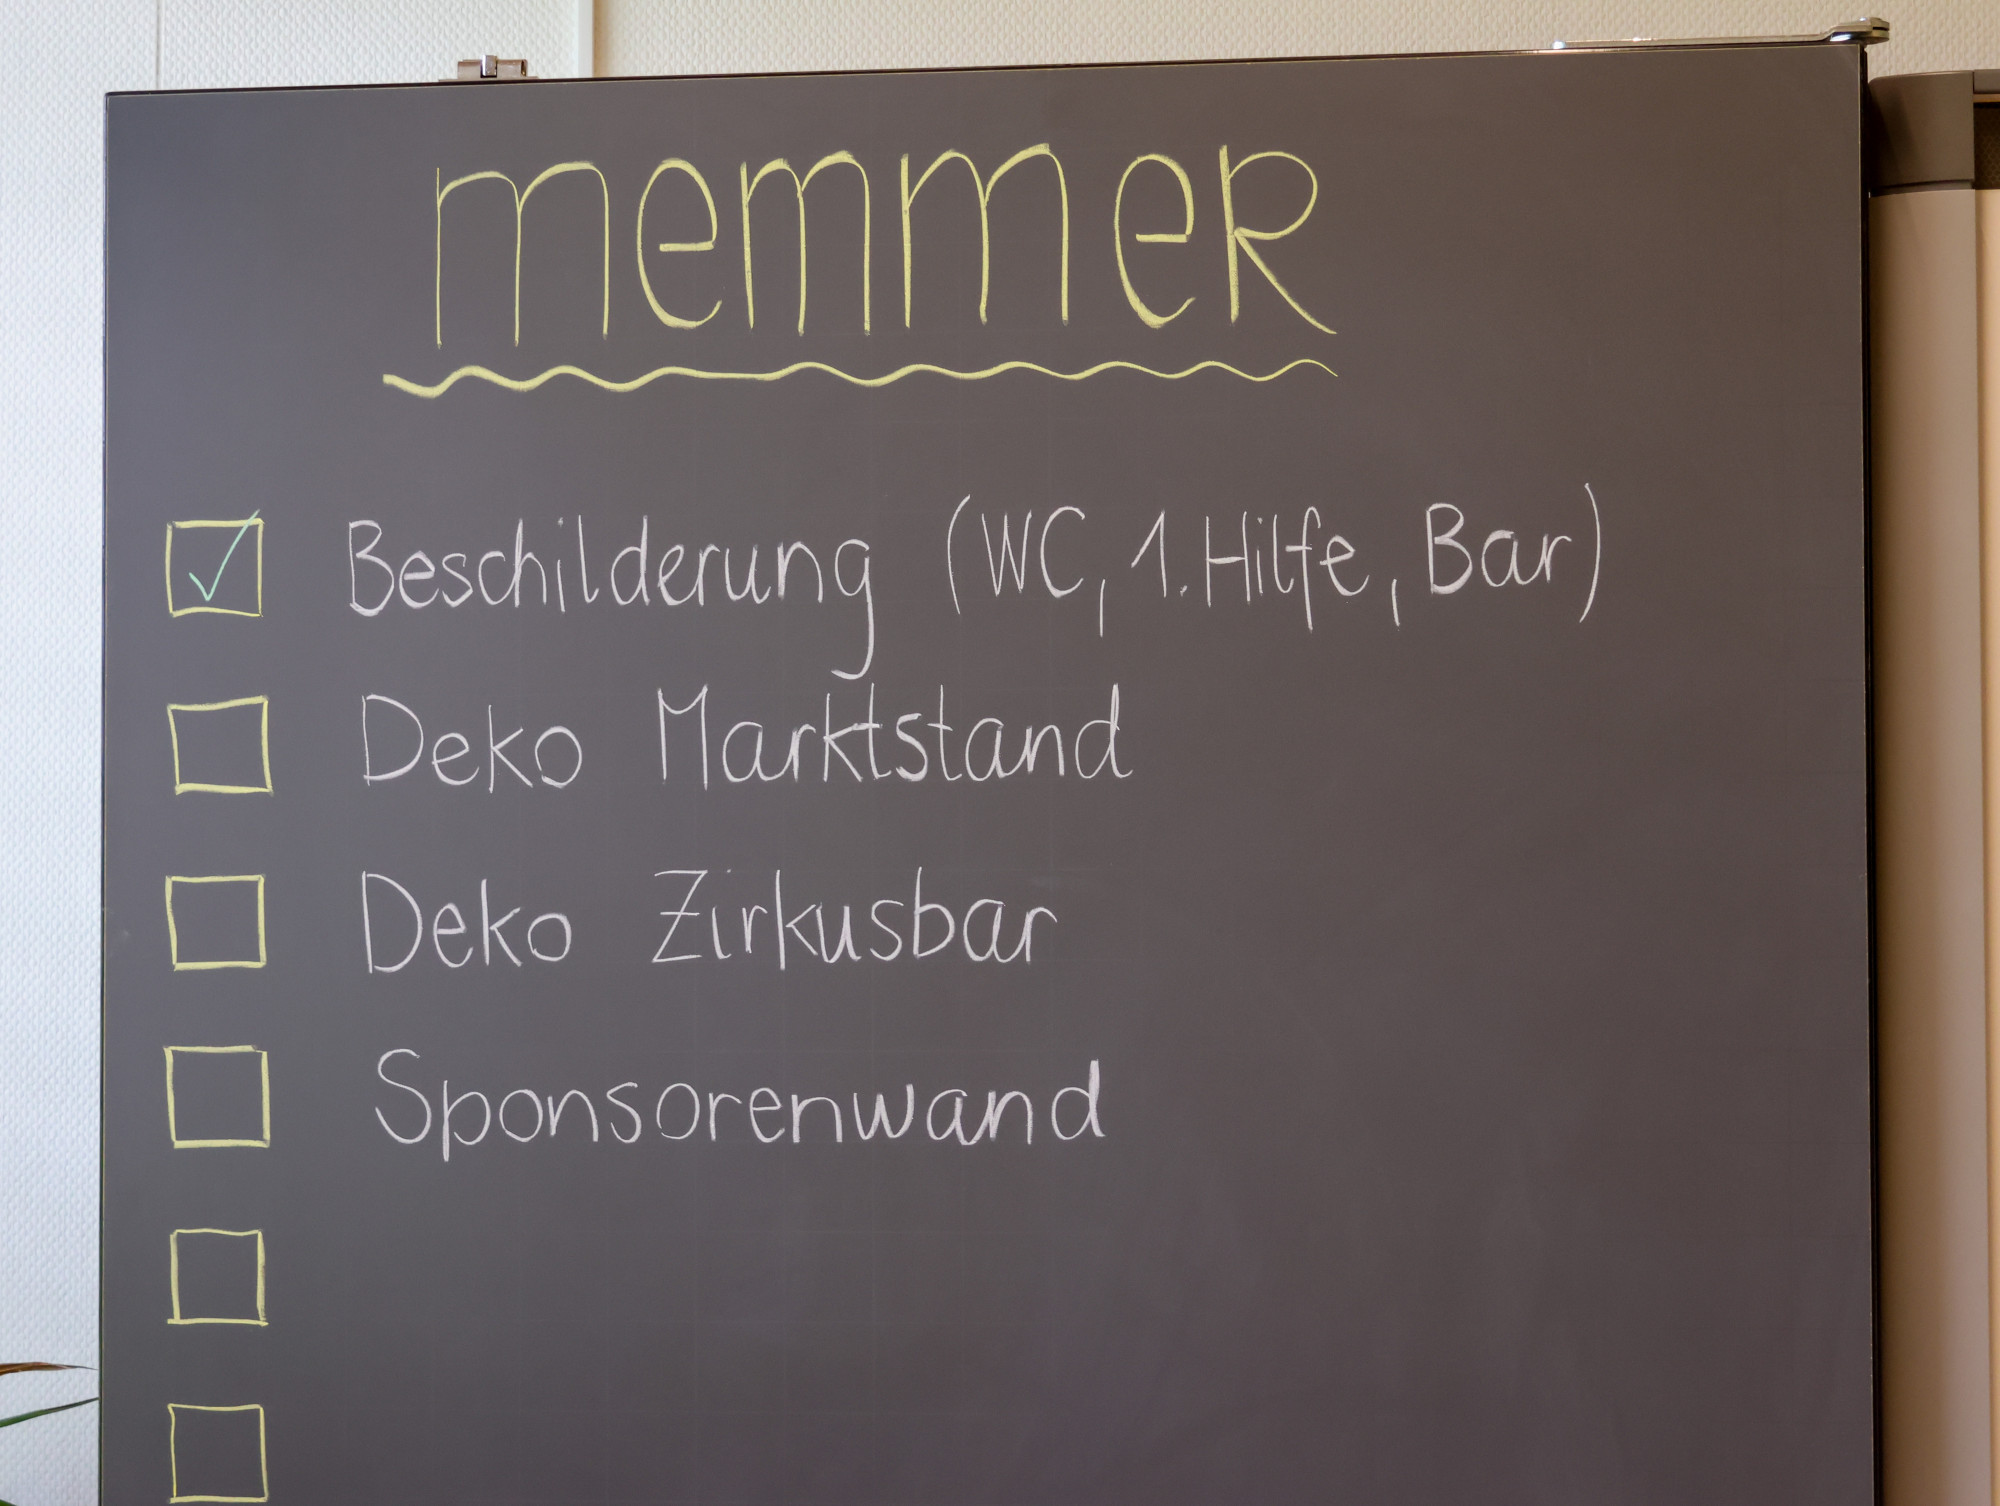 memmeR
Beschilderung (WC, 1. Hilfe, Bar)
Deko Marktstand
Deko Zirkusbar
Sponsorenwand